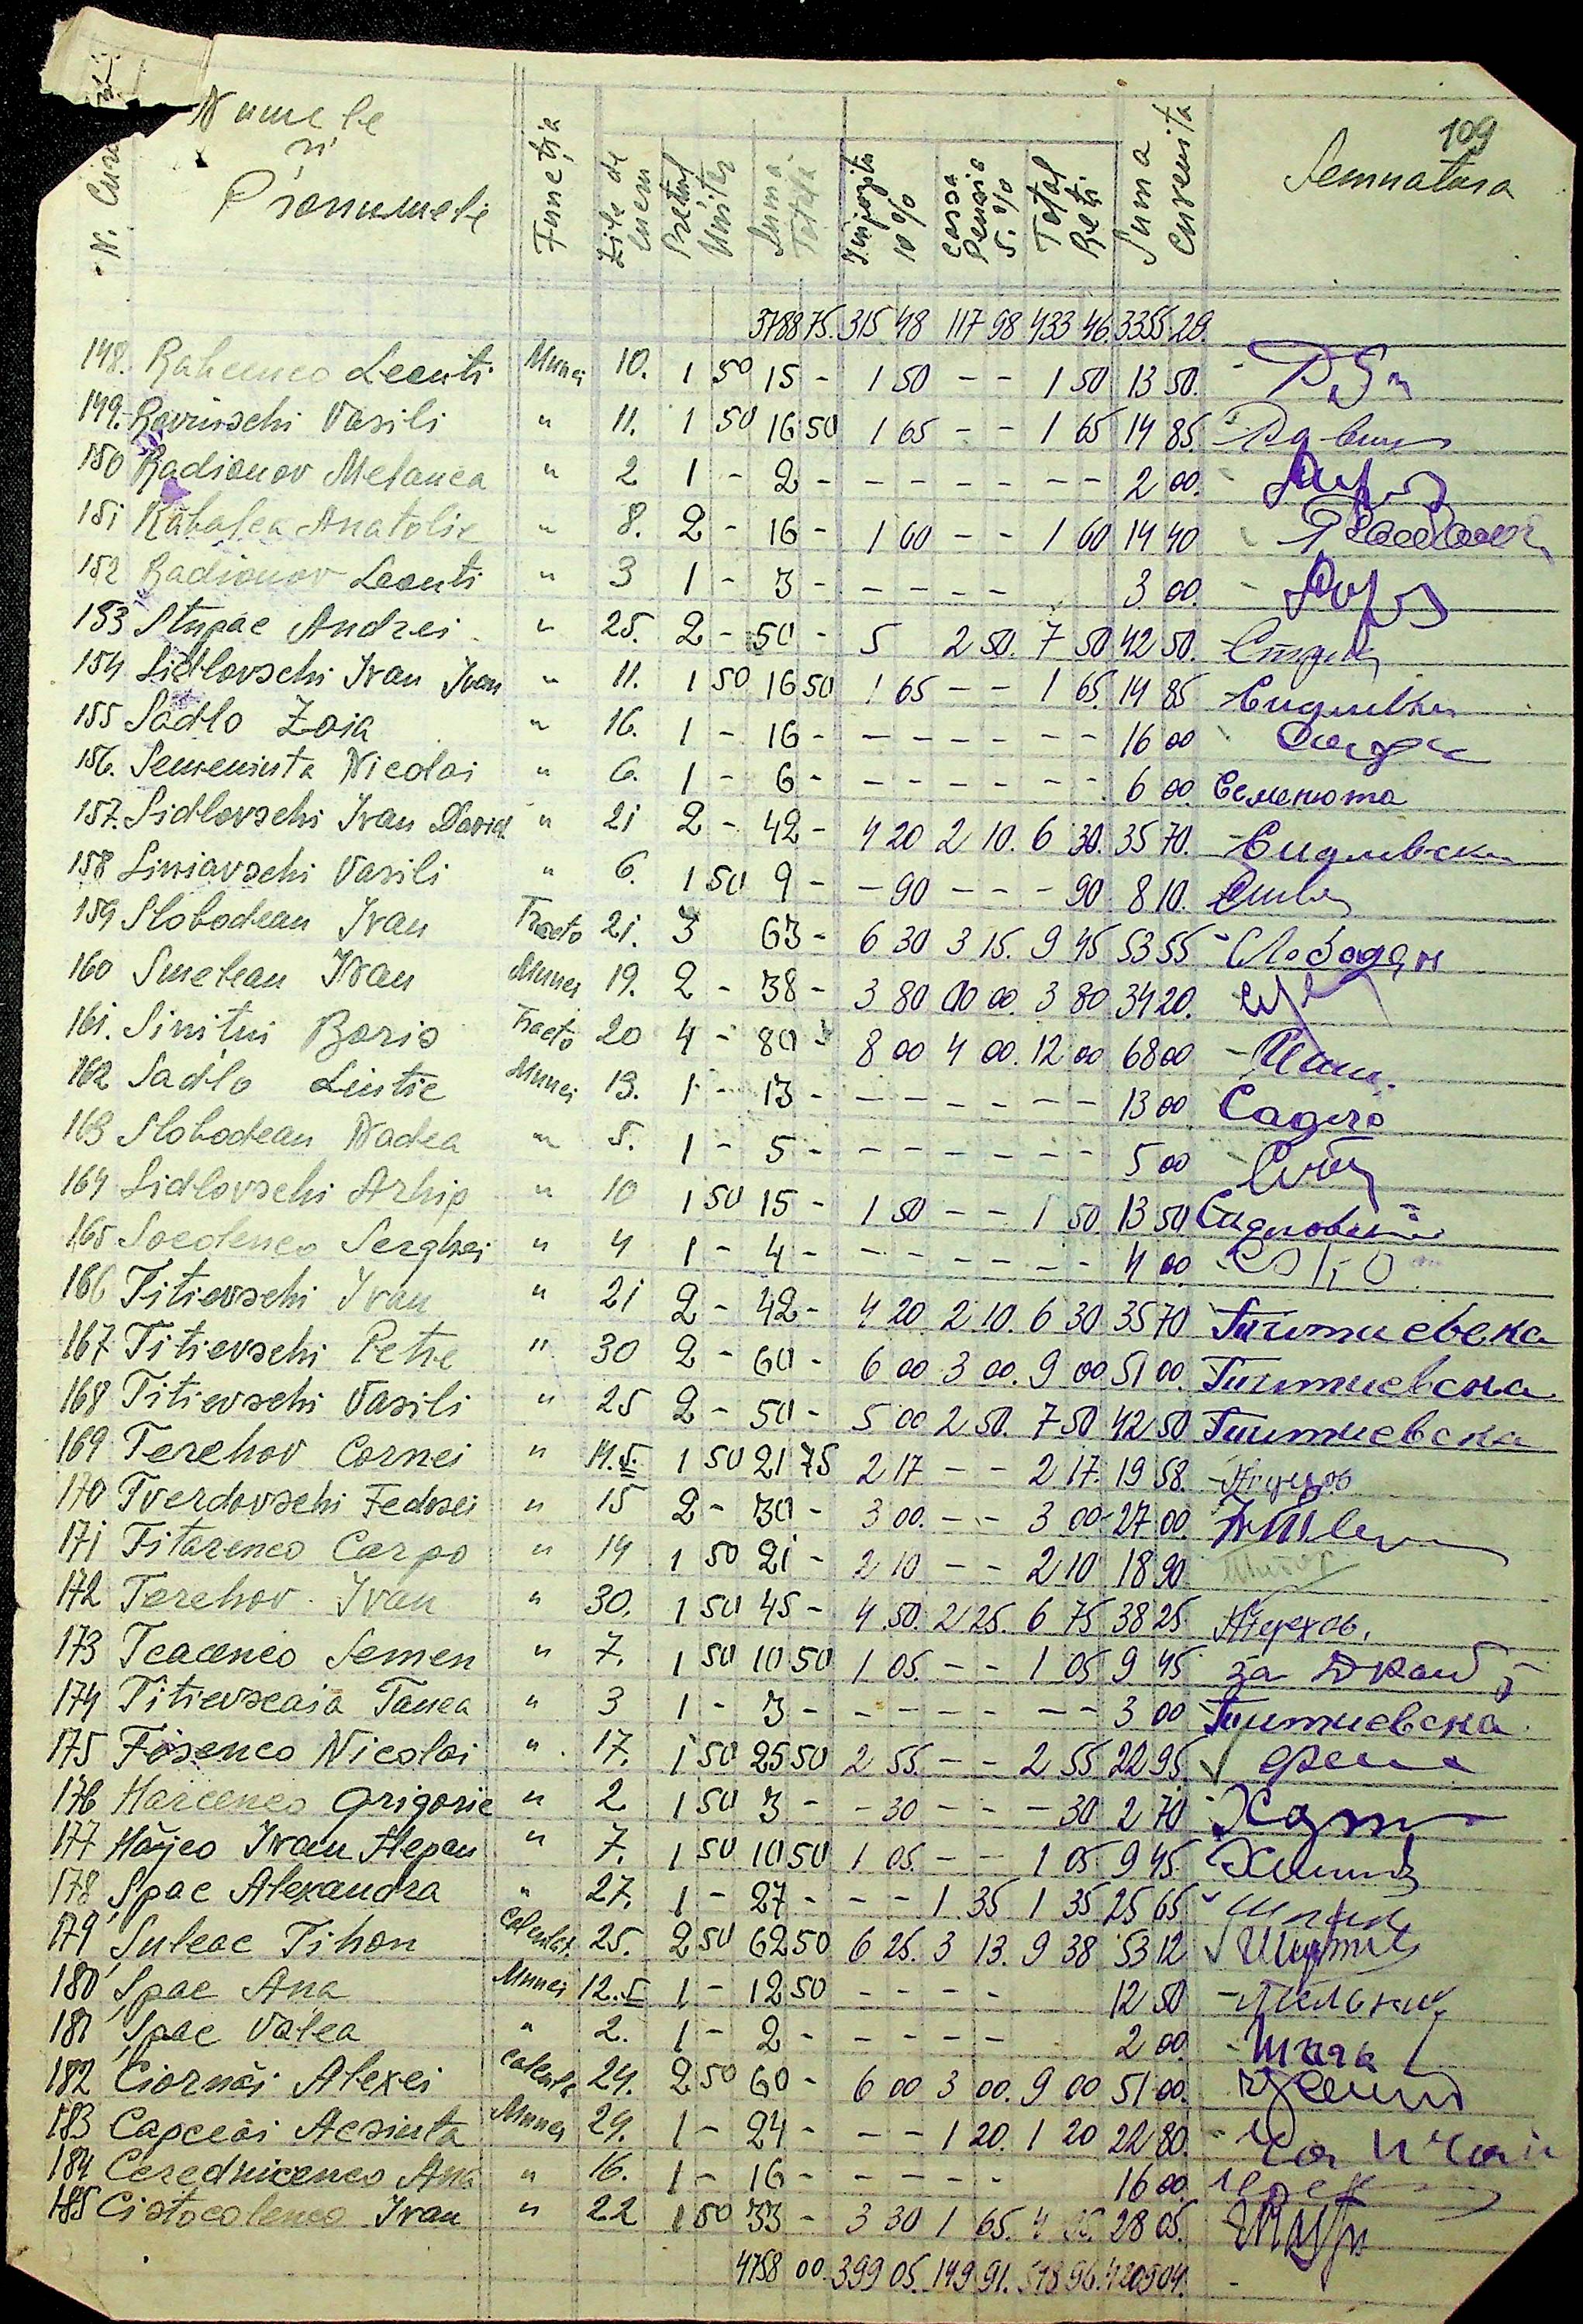 109
N. Cur. Numele si Pronumele Funcția Zile de Prețul Unitar Suma Totala Impozit 10% Casa Pensie 5.% Total Reți. Suma Cuvenita Semnatura
3788 75. 315 48 117 98 433 46. 3355 29.
148. Leonti Munci 10. 1 50 15 - 1 50 - - 1 50 13 50.
149. Vasili " 11. 1 50 16 50 1 65 - - 1 65 14 85.
150 Radionov Melanea " 2 1 - 2 - - - - - - - 2 00.
151 Anatolie " 8. 2 - 16 - 1 60 - - 1 60 14 40
152 Radionov Leonti " 3 1 - 3 - - - - - 3 00.
153 Stupac Andrei " 25. 2 - 50 - 5 2 50. 7 50 42 50.
154 Sidlovschi Ivan Ivan " 11. 1 50 16 50 1 65 - - 1 65. 14 85
155 Sadlo Zoia " 16. 1 - 16 - - - - - - - 16 00
156. Semeniuta Nicolai " 6. 1 - 6 - - - - - - - 6 00. Семенюта
157. Sidlovschi Ivan David " 21 2 - 42 - 4 20 2 10. 6 30. 35 70.
158 Siniavschi Vasili " 6. 1 50 9 - - 90 - - - 90 8 10.
159 Slobodean Ivan Tracto 21. 3 63 - 6 30 3 15. 9 45 53 55 Слободян
160 Smelean Ivan Munci 19. 2 - 38 - 3 80 00 00. 3 80 34 20.
161. Sinitui Boris Tracto 20 4 - 80 - 8 00 4 00. 12 00 68 00
162 Sadlo Munci 13. 1 - 13 - - - - - - - 13 00 Садло
163 Slobodean Nadea " 5. 1 - 5 - - - - - - - 5 00
164 Sidlovschi Arhip " 10 1 50 15 - 1 50 - - 1 50. 13 50
165 Socolenco Serghei " 4 1 - 4 - - - - - - - 4 00
166 Titievschi Ivan " 21 2 - 42 - 4 20. 2 10. 6 30 35 70 Титиевска
167 Titievschi Petre " 30 2 - 60 - 6 00 3 00. 9 00 51 00. Титиевска
168 Titievschi Vasili " 25 2 - 50 - 5 00 2 50. 7 50 42 50 Титиевска
169 Terehov Cornei " 14.5. 1 50 21 75 2 17 - - 2 17. 19 58.
170 Tverdovschi Fedosei " 15 2 - 30 - 3 00. - - 3 00 - 27 00.
171 Titarenco Carpo " 14 1 50 21 - 2 10 - - 2 10 18 90
172 Terehov Ivan " 30. 1 50 45 - 4 50. 2 25. 6 75 38 25. Терехов.
173 Tcacenco Semen " 7. 1 50 10 50 1 05. - - 1 05 9 45 за
174 Titievscaia Tanea " 3 1 - 3 - - - - - - - 3 00 Титиевска
175 Fosenco Nicolai " 17. 1 50 25 50 2 55. - - 2 55 22 95
176 Harcenco Grigorie " 2 1 50 3 - - 30 - - - 30 2 70
177 Ivan Stepan " 7. 1 50 10 50 1 05. - - 1 05 9 45.
178 Șpac Alexandra " 27. 1 - 27 - - - 1 35 1 35 25 65
179 Șuleac Tihon 25. 2 50 62 50 6 25. 3 13. 9 38 53 12
180 Șpac Ana Munci 12.5 1 - 12 50 - - - - 12 50
181 Șpac Valea " 2. 1 - 2 - - - - - 2 00. Шпак
182 Ciornâi Alexei 24. 2 50 60 - 6 00 3 00. 9 00 51 00.
183 Capceai Acsinta Munci 24. 1 - 24 - - - 1 20. 1 20 22 80.
184 Cerednicenco Ana " 16. 1 - 16 - - - - - 16 00
185 Cistocolenco Ivan " 22 1 50 33 - 3 30 1 65. 28 05.
4758 00. 399 05. 149 91. 548 96. 4209 04.